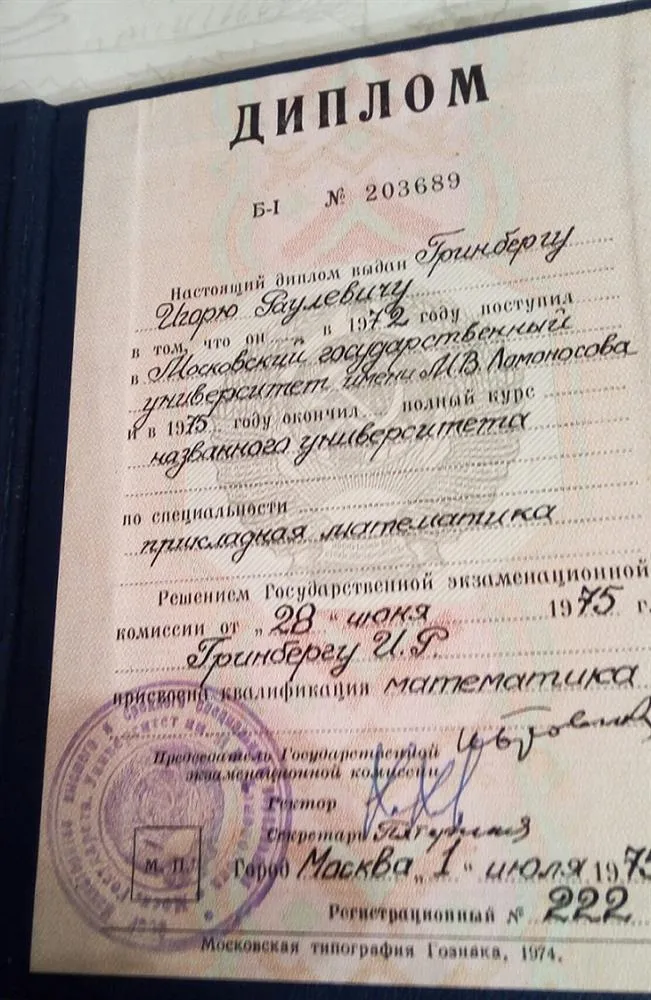 ДИПЛОМ
Б-I № 203689
Настоящий диплом выдан Гринбергу
Игорю Раулевичу
в том, что он „ в 1972 году поступил
в Московский государственный
университет имени М.В. Ломоносова
и в 1975 году окончил полный курс
названного университета
по специальности
прикладная математика
Решением Государственной экзаменационной
комиссии от „28“ июня 1975 г.
Гринбергу И.Р.
присвоена квалификация математика
Председатель Государственной
экзаменационной комиссии
Ректор
Секретарь
М. П.
Город Москва „1“ июля 1975
Регистрационный № 222
Московская типография Гознака, 1974.